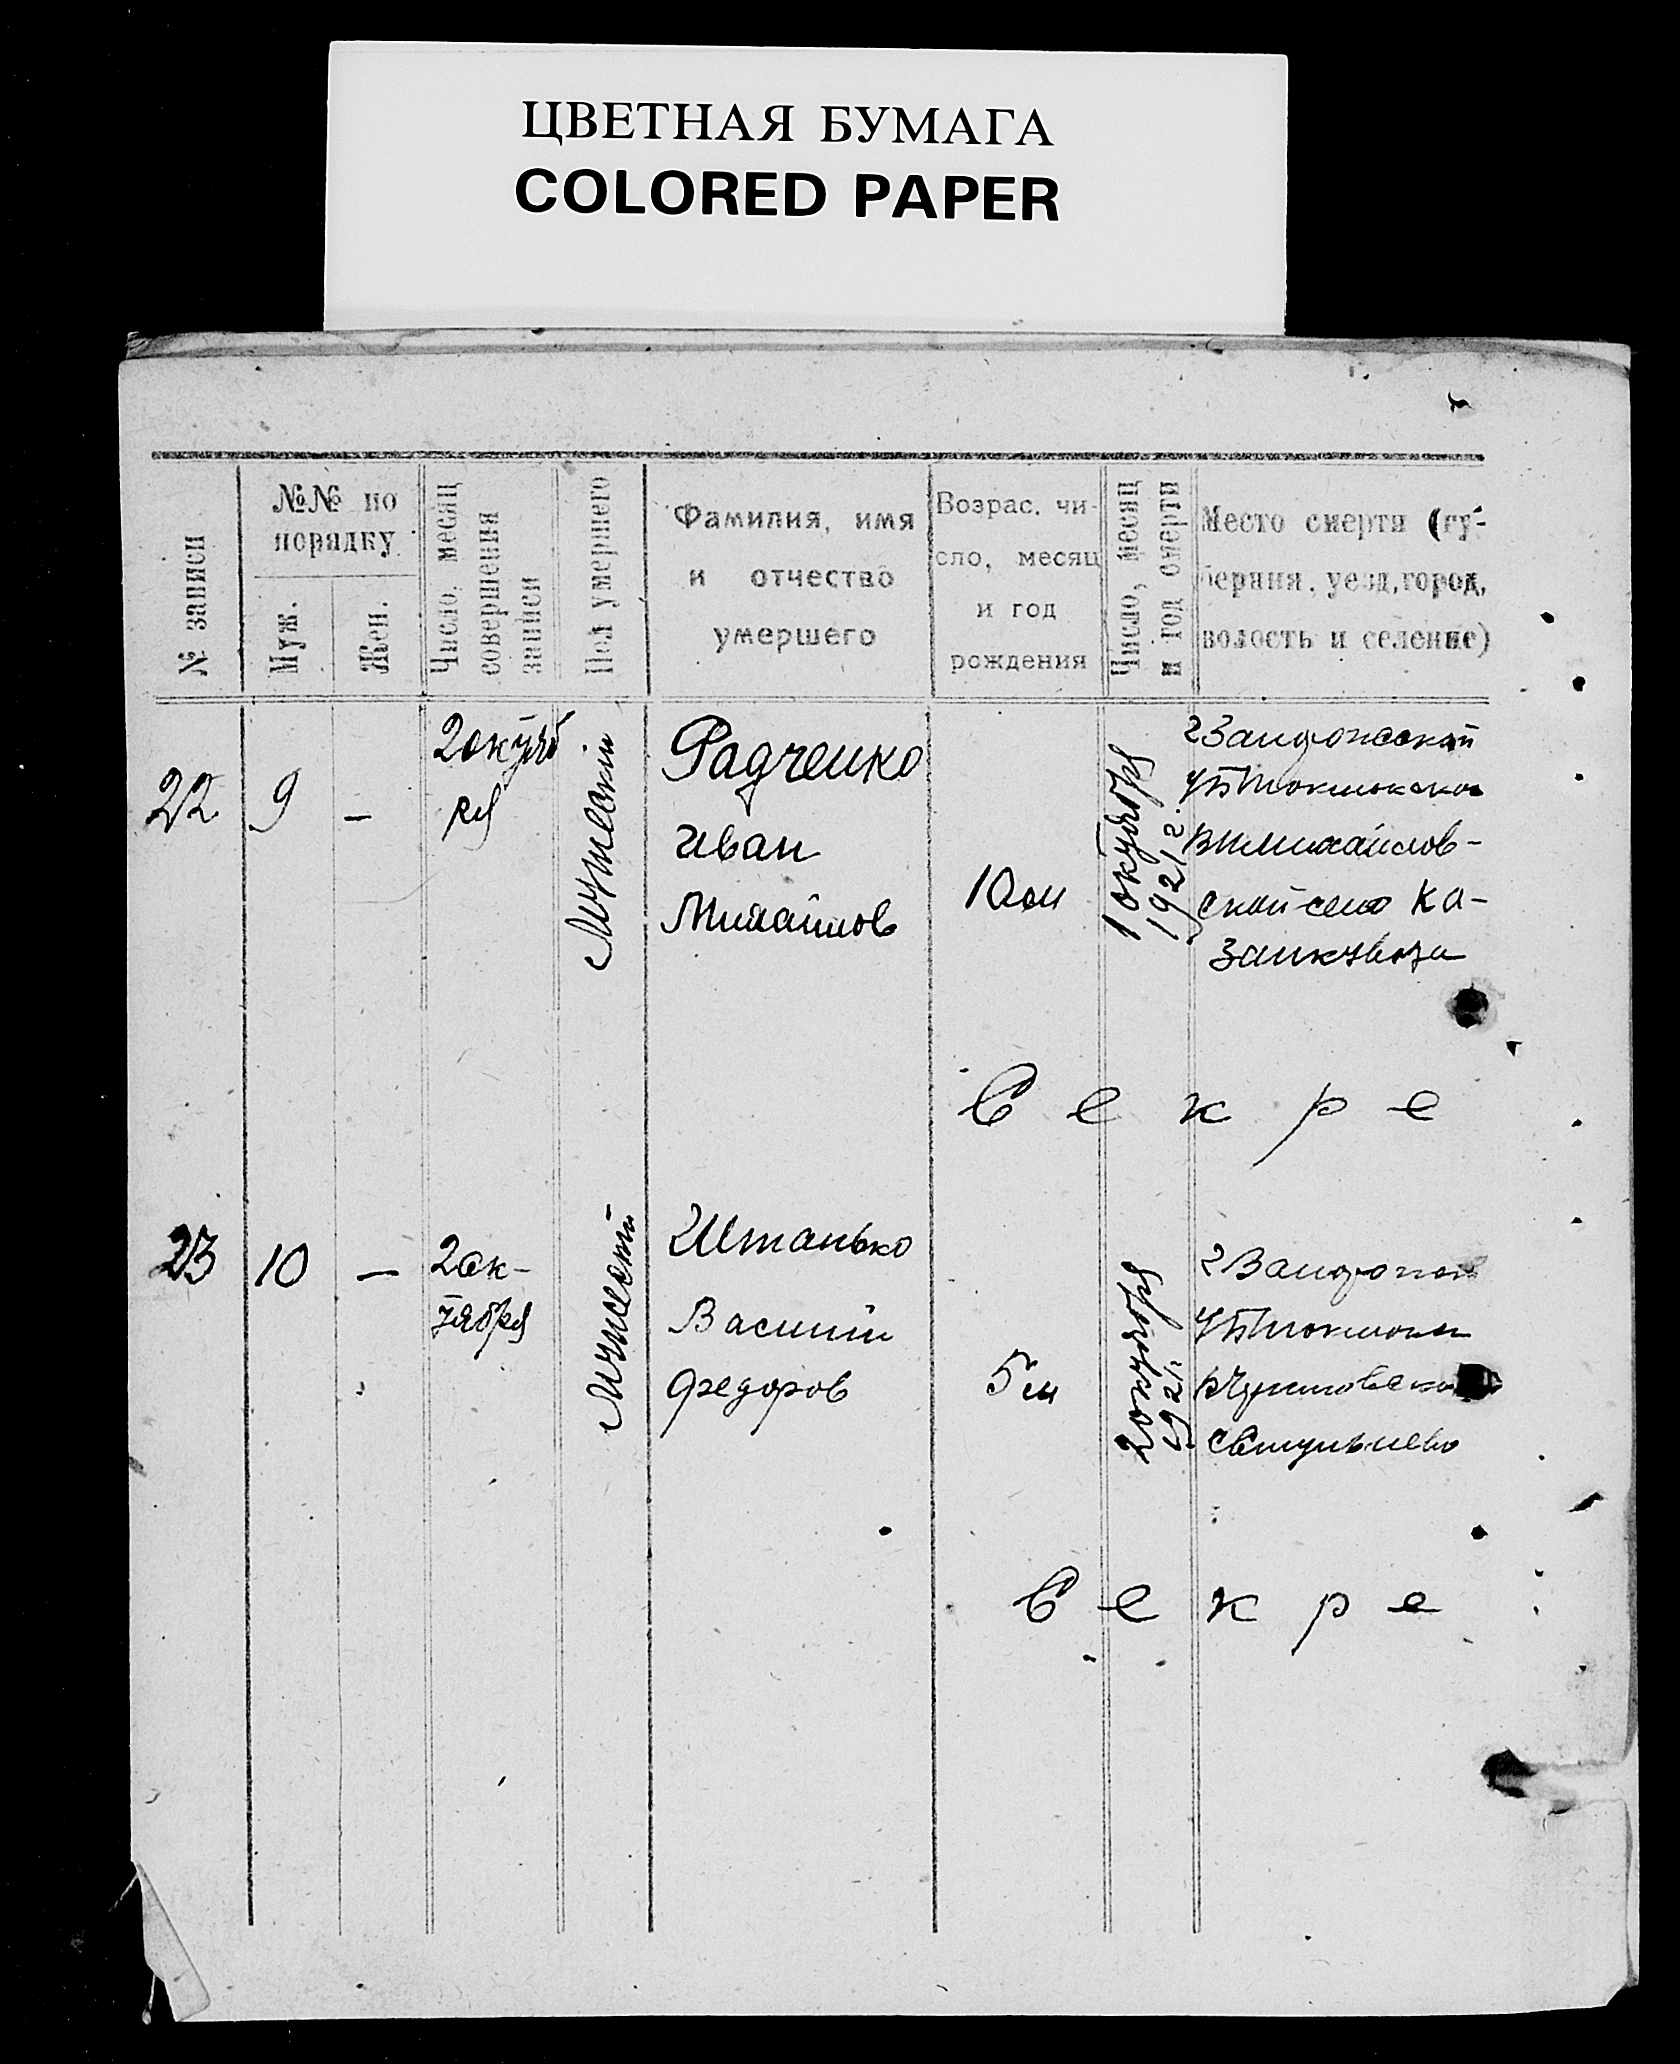 ЦВЕТНАЯ БУМАГА
COLORED PAPER
№ записи
№№ по
порядку
Муж.
Жен.
Число, месяц
совершения
записи
Пол умершего
Фамилия, имя
и отчество
умершего
Возрас. чи-
сло, месяц
и год
рождения
Число, месяц
и год смерти
Место смерти (гу-
берния, уезд, город,
волость и селение)
22
9
—
2 октяб
ря
Мужеский
Радченко
Иван
Михайлов
10 м
1 октября
1921 г.
в Михайлов-
ской село Ка-
С е к р е
23
10
—
2 ок-
тября
Мужеский
Штанько
Василий
Федоров
5 м
2 октября
1921 г.
С е к р е